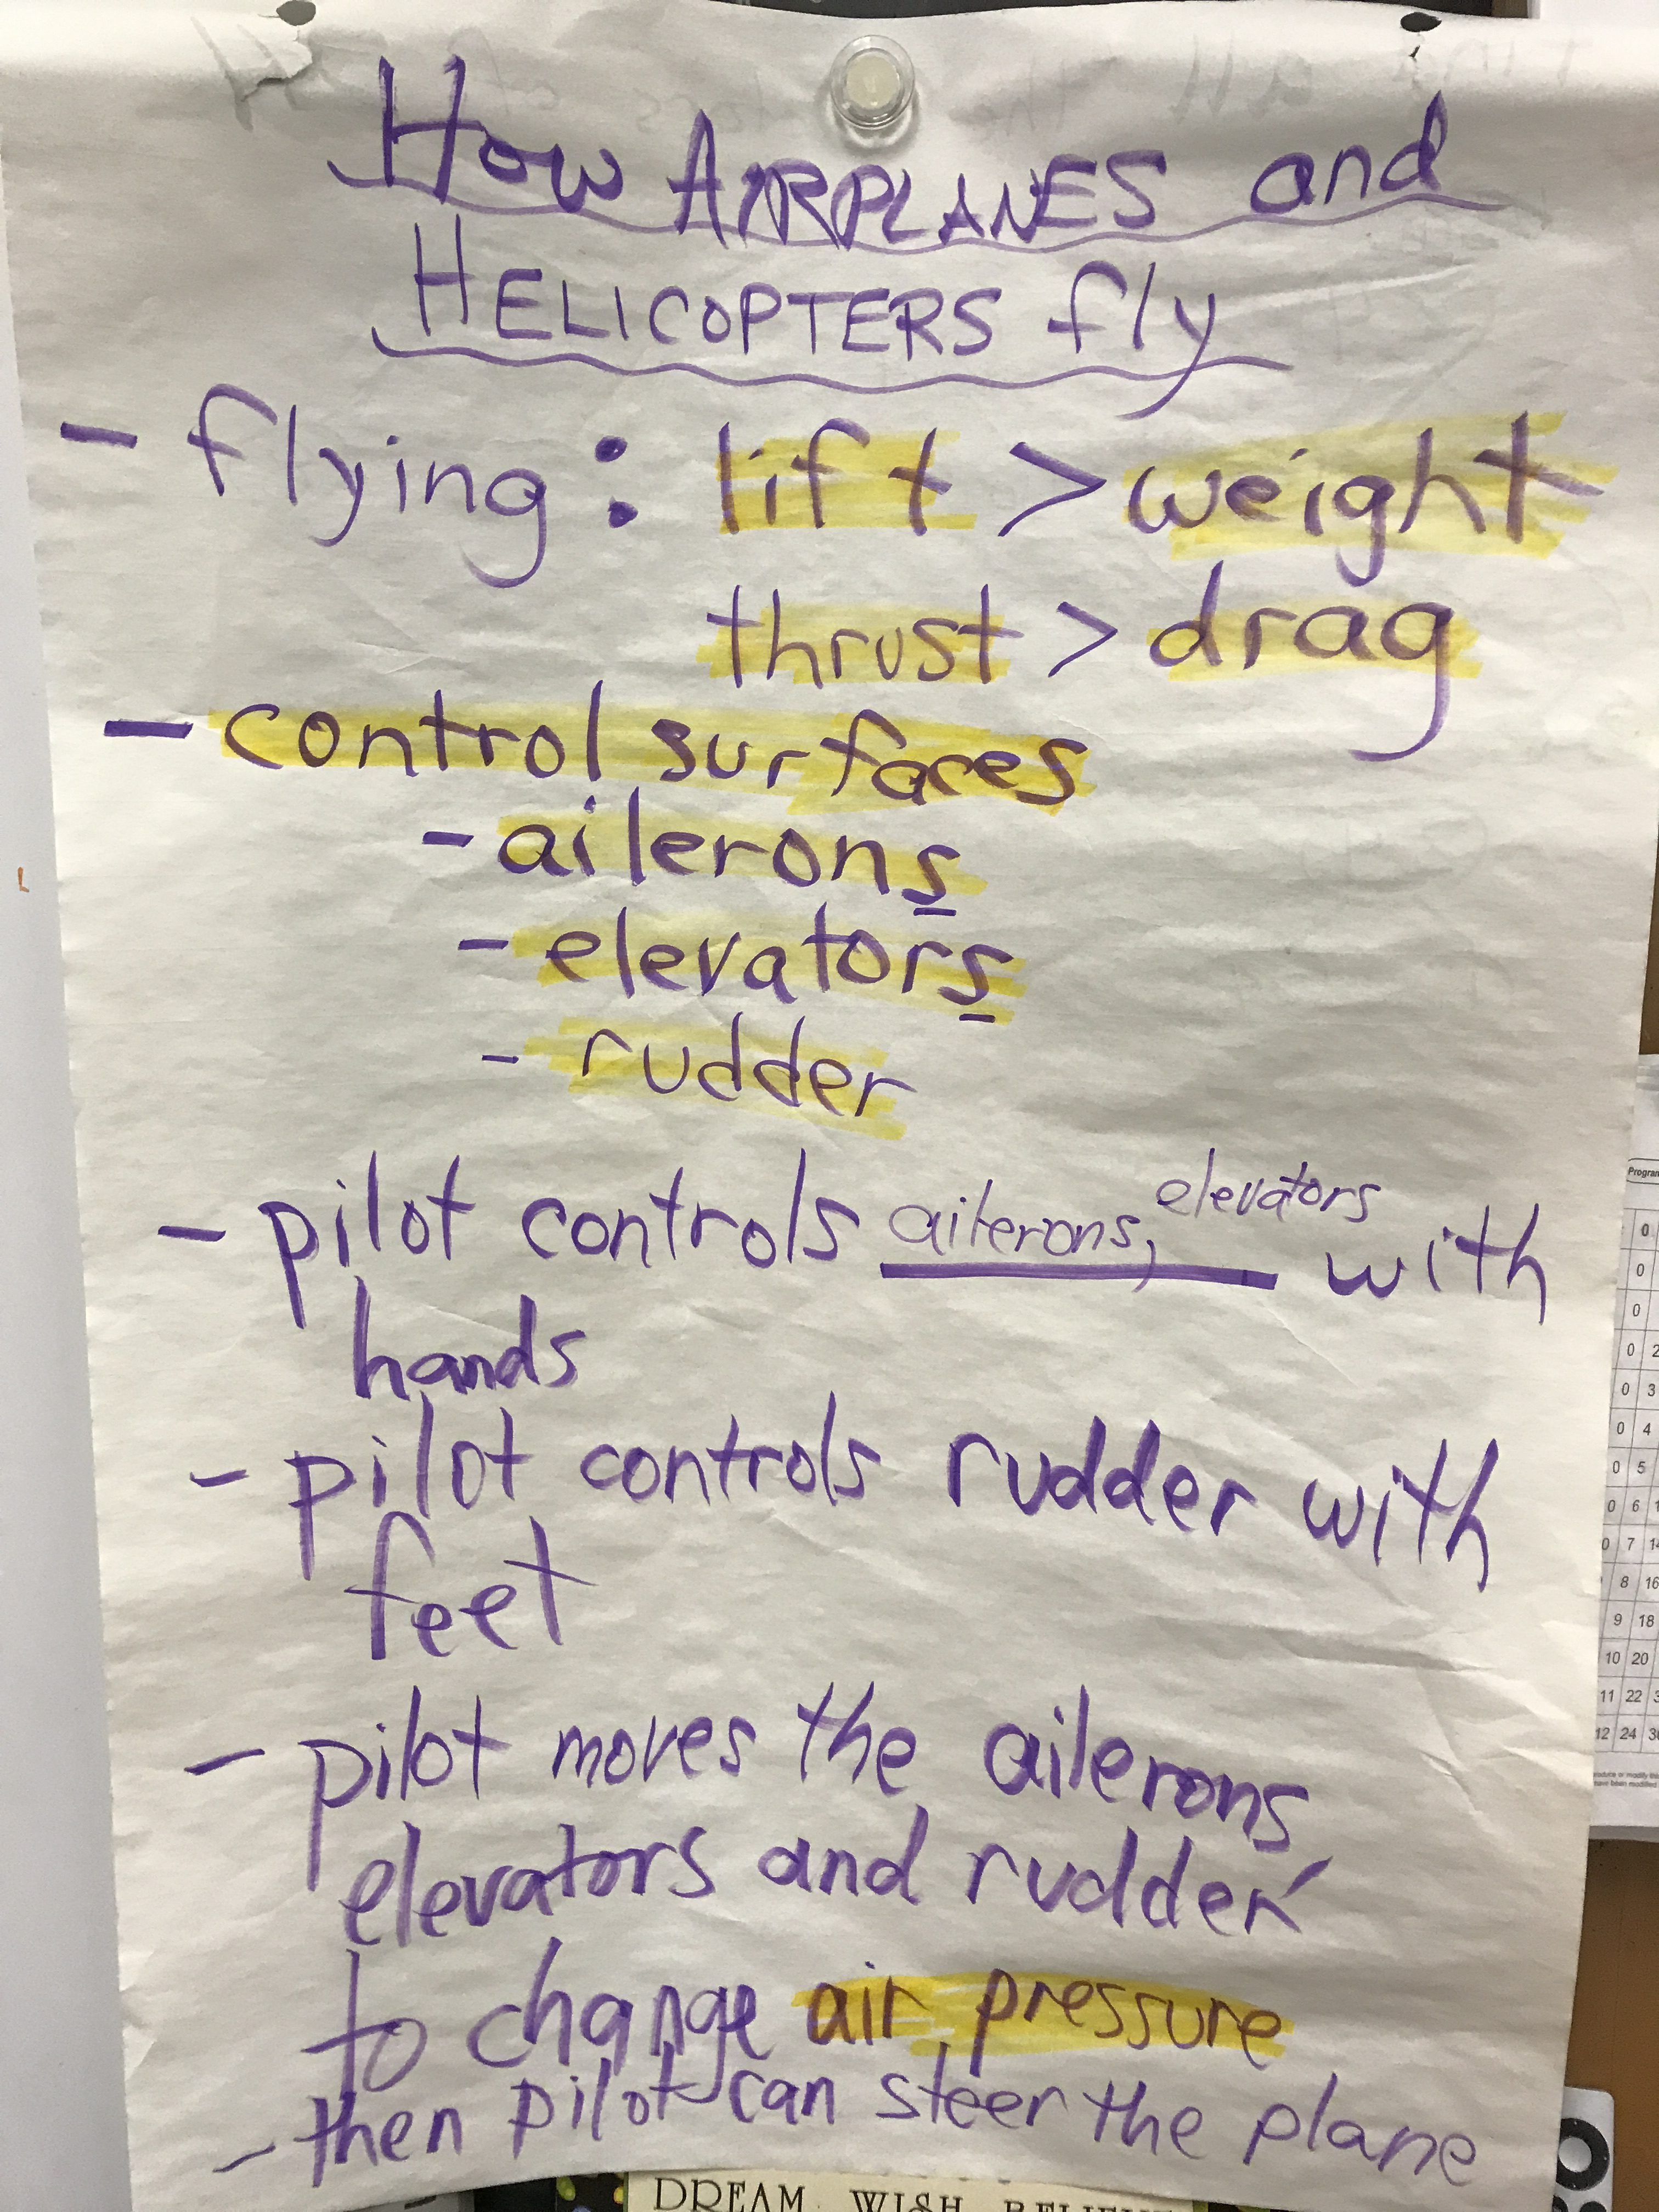 How AIRPLANES and
HELICOPTERS fly
- flying: lift > weight
thrust > drag
- control surfaces
- ailerons
- elevators
- rudder
- pilot controls ailerons, elevators with
hands
- pilot controls rudder with
feet
- pilot moves the ailerons
elevators and rudder
to change air pressure
- then pilot can steer the plane
DREAM WISH
Program
0
0
0
0 2
0 3
0 4
0 5
0 6
0 7 14
8 16
9 18
10 20
11 22
12 24